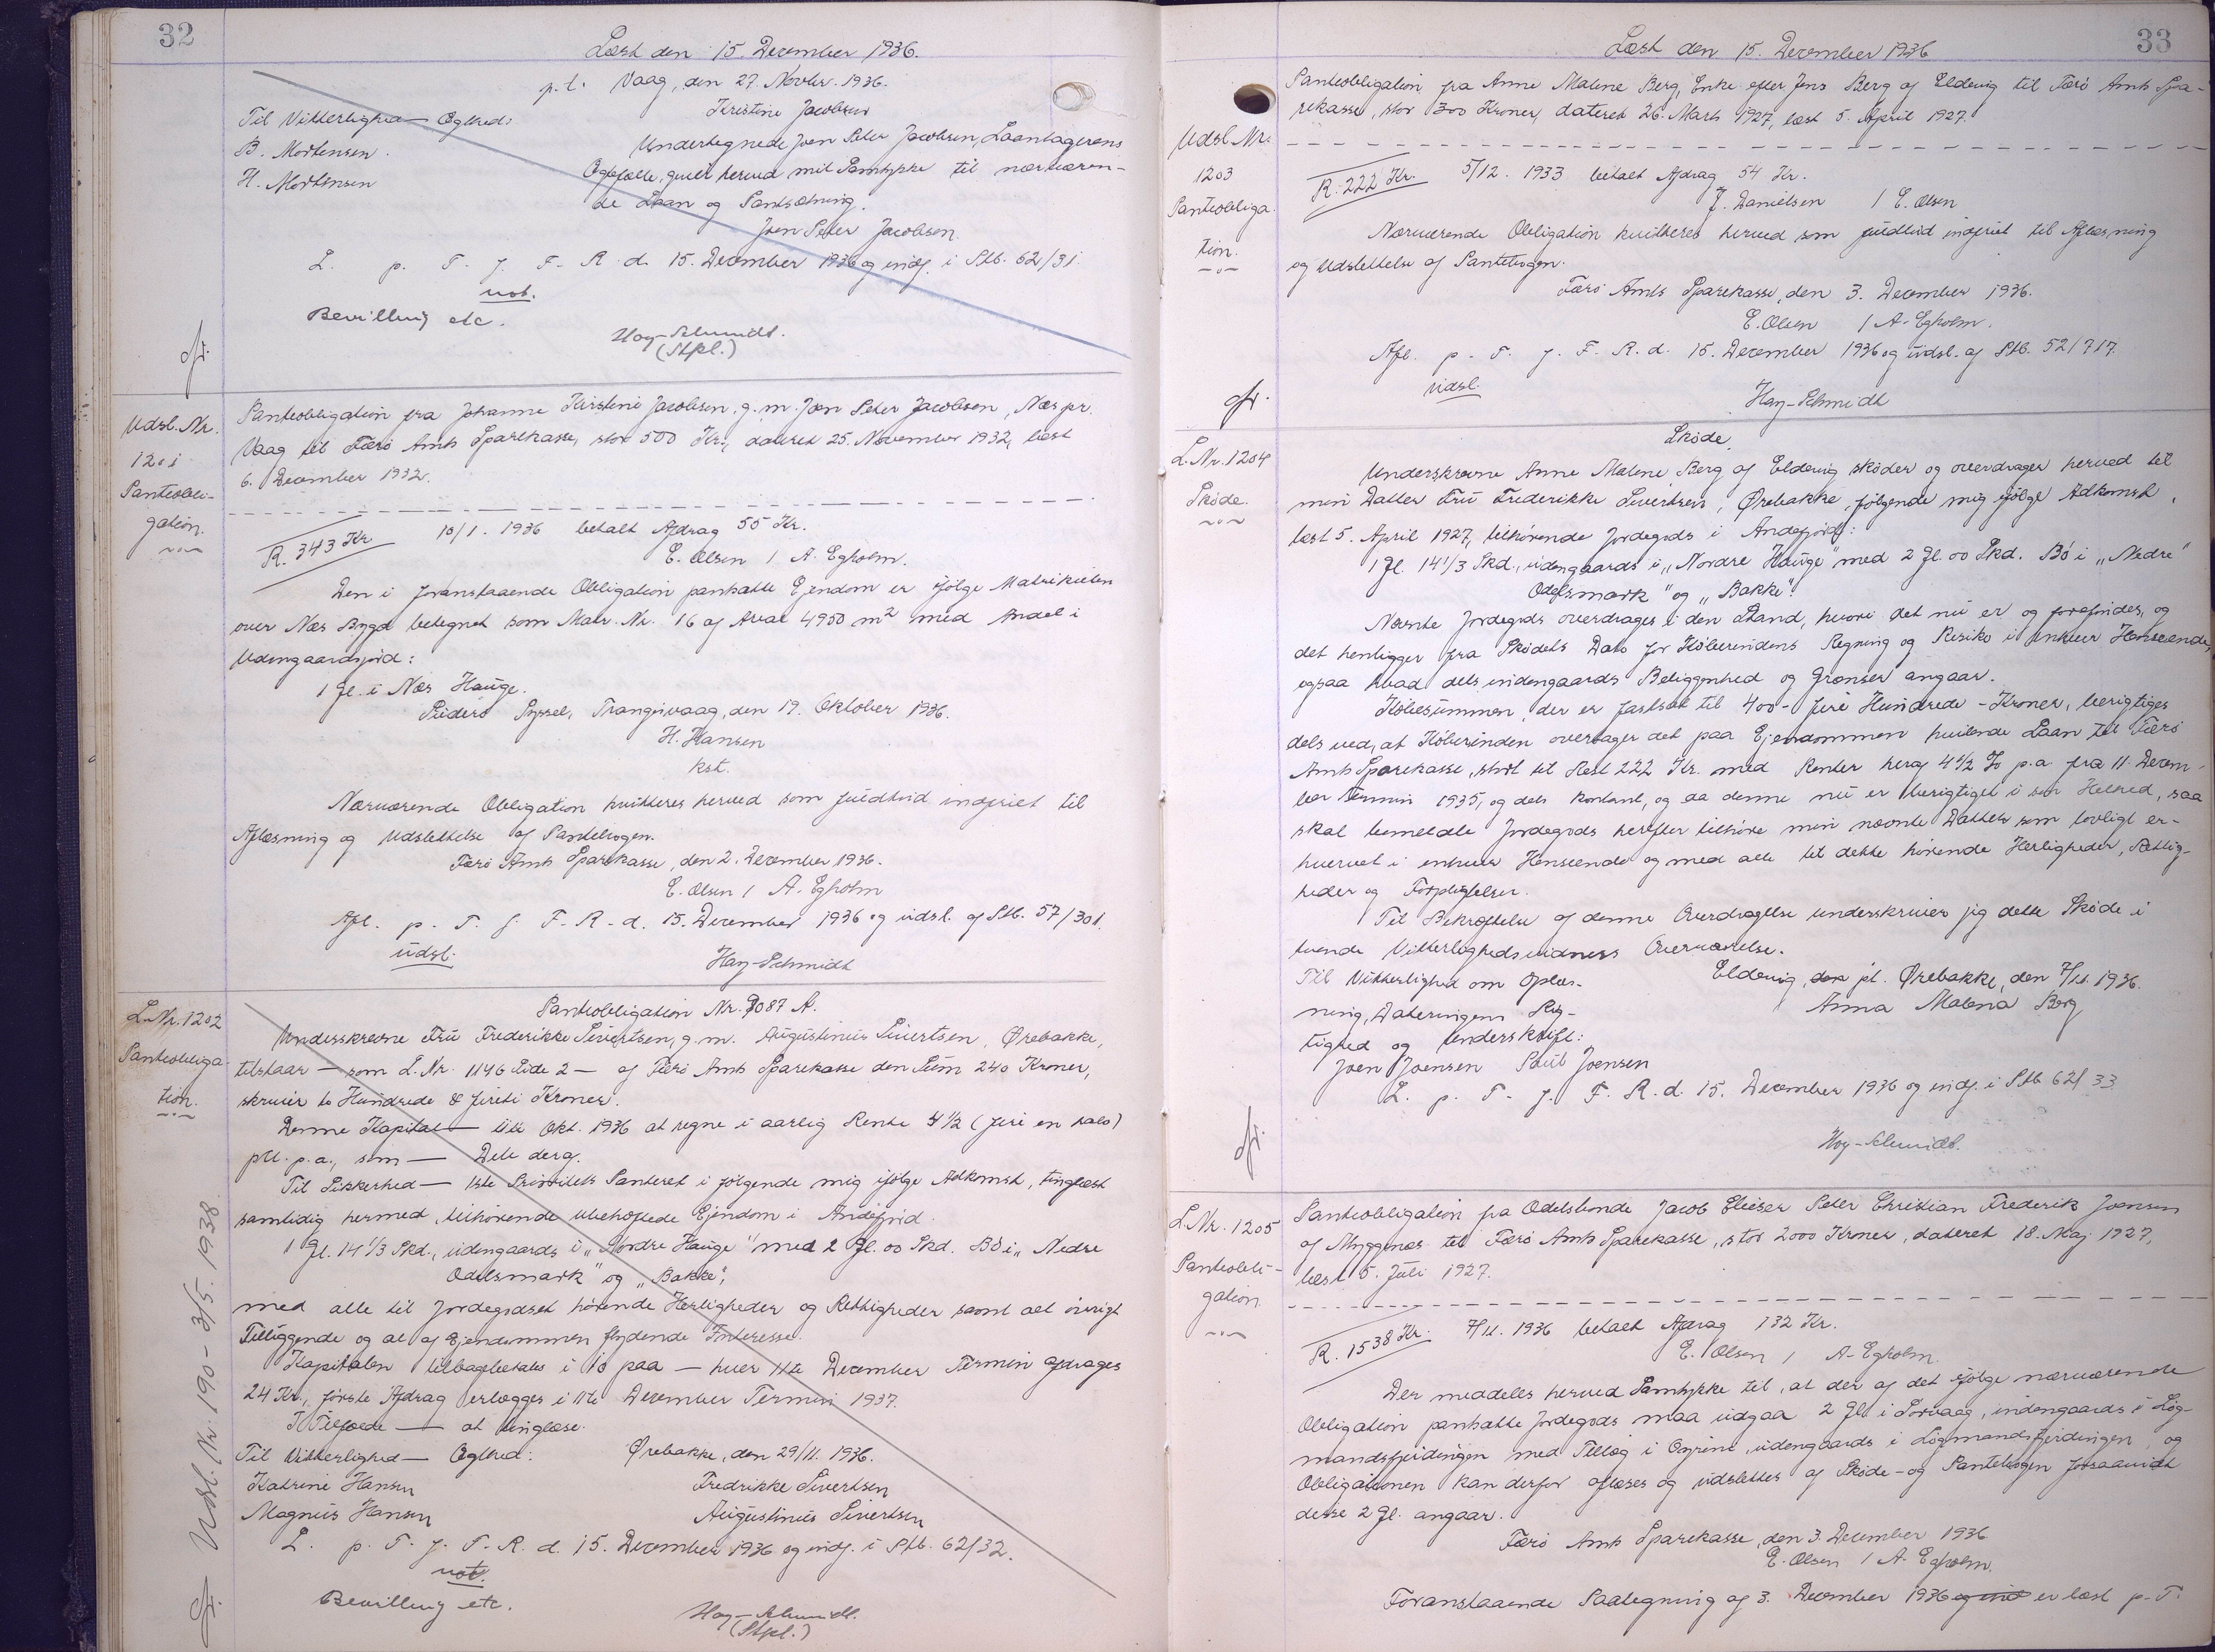 32
Læst den 15. December 1936.
p.t. Vaag, den 27. Novbr. 1936.
Kristine Jacobsen
Til Vitterlighed — Egthed:
B. Mortensen.
H. Mortensen
Undertegnede Joen Peter Jacobsen, Laantagerens
Ægtefælle, giver herved mit Samtykke til nærværen-
de Laan og Pantsætning.
Joen Peter Jacobsen.
L. p. T. f. F. R. d. 15. December 1936 og indf. i Stb. 62/31.
not.
Bevilling etc.
Hay-Schmidt.
(Stpl.)
Udsl. Nr.
1201
Panteobli-
gation.
Panteobligation fra Johanne Kirstine Jacobsen, g.m. Joen Peter Jacobsen, Næs pr.
Vaag til Færö Amts Sparekasse, stor 500 Kr., dateret 25. November 1932, læst
6. December 1932.
R. 343 Kr. 10/1. 1936 betalt Afdrag 55 Kr.
E. Olsen / A. Egholm.
Den i foranstaaende Obligation pantsatte Ejendom er ifölge Matrikulen
over Næs Bygd betegnet som Matr. Nr. 16 af Areal 4950 m² med Andel i
Udengaardsjord:
1 Gl. i Næs Hauge.
Suderö Syssel, Trangisvaag, den 19. Oktober 1936.
H. Hansen
kst.
Nærværende Obligation kvitteres herved som fuldtud indfriet til
Aflæsning og Udslettelse af Pantebogen.
Færö Amts Sparekasse, den 2. December 1936.
E. Olsen / A. Egholm
Afl. p. T. f. F. R. d. 15. December 1936 og udsl. af Stb. 57/301.
udsl.
Hay-Schmidt
L. Nr. 1202
Panteobliga
tion.
Udsl. Nr. 190 - 3/5. 1938.
Panteobligation Nr. 7087 A.
Underskrevne Fru Frederikke Sivertsen, g.m. Augustinus Sivertsen, Ørebakke,
tilstaar — som L. Nr. 1146 Side 2 — af Færö Amts Sparekasse den Sum 240 Kroner,
skriver to Hundrede & fireti Kroner.
Denne Kapital — 11te Okt. 1936 at regne i aarlig Rente 4½ (fire en halv)
pCt. p.a., som — Dele deraf.
Til Sikkerhed — 1ste Prioritets Panteret i fölgende mig ifölge Adkomst, tinglæst
samtidig hermed, tilhörende ubehæftede Ejendom i Andefjord.
1 Gl. 14 1/3 Skd., udengaards i „Nordre Hauge" med 2 Gl. 00 Skd. Bö i „Nedre
Odelsmark" og „Bakke",
med alle til Jordegodset hörende Herligheder og Rettigheder samt alt övrigt
Tilliggende og al af Ejendommen flydende Interesse.
Kapitalen tilbagebetales i 10 paa — hver 11te December Termin afdrages
24 Kr., förste Afdrag erlægges i 11te December Termin 1937.
I Tilfælde — at tinglæse.
Til Vitterlighed — Egthed: Ørebakke, den 29/11. 1936.
Katrine Hansen Fredrikke Sivertsen
Magnus Hansen Augustinus Sivertsen
L. p. T. f. F. R. d. 15. December 1936 og indf. i Stb. 62/32.
not.
Bevilling etc.
Hay-Schmidt.
(Stpl.)
33
Læst den 15. December 1936
Panteobligation fra Anne Malene Berg, Enke efter Jens Berg af Eldevig til Færö Amts Spa-
rekasse, stor 300 Kroner, dateret 26. Marts 1927, læst 5. April 1927.
Udsl. Nr.
1203
Panteobliga
tion.
R. 222 Kr. 5/12. 1933 betalt Afdrag 54 Kr.
J. Danielsen / E. Olsen
Nærværende Obligation kvitteres herved som fuldtud indfriet til Aflæsning
og Udslettelse af Pantebogen.
Færö Amts Sparekasse, den 3. December 1936.
E. Olsen / A. Egholm.
Afl. p. T. f. F. R. d. 15. December 1936 og udsl. af Stb. 52/717.
udsl.
Hay-Schmidt
L. Nr. 1204
Sköde.
Sköde
Underskrevne Anne Malene Berg af Eldevig sköder og overdrager herved til
min Datter Fru Frederikke Sivertsen, Ørebakke, fölgende mig ifölge Adkomst,
læst 5. April 1927, tilhörende Jordegods i Andefjord:
1 Gl. 14 1/3 Skd., udengaards i „Nordre Hauge" med 2 Gl. 00 Skd. Bö i „Nedre
Odelsmark" og „Bakke".
Nævnte Jordegods overdrages i den Stand, hvori det nu er og forefindes, og
det henligger fra Sködets Dato for Köberindens Regning og Risiko i enhver Henseende,
ogsaa hvad dets indengaards Beliggenhed og Grænser angaar.
Köbesummen, der er fastsat til 400 - fire Hundrede - Kroner, berigtiges
dels ved, at Köberinden overtager det paa Ejendommen hvilende Laan til Færö
Amts Sparekasse, stort til Rest 222 Kr. med Renter heraf 4½ % p.a. fra 11. Decem-
ber Termin 1935, og dels kontant, og da denne nu er berigtiget i sin Helhed, saa
skal bemeldte Jordegods herefter tilhöre min nævnte Datter som lovligt er-
hvervet i enhver Henseende og med alle til dette hörende Herligheder, Rettig-
heder og Forpligtelser.
Til Bekræftelse af denne Overdragelse underskriver jeg dette Sköde i
tvende Vitterlighedsvidners Overværelse.
Til Vitterlighed om Oplæs- Eldevig, den pt. Ørebakke, den 7/11. 1936.
ning, Dateringens Rig- Anna Malena Berg
tighed og Underskrift:
Joen Joensen Poul Joensen
L. p. T. f. F. R. d. 15. December 1936 og indf. i Stb. 62/33
Hay-Schmidt.
L. Nr. 1205
Panteobli-
gation.
Panteobligation fra Odelsbonde Jacob Elieser Peter Christian Frederik Joensen
af Myggenæs til Færö Amts Sparekasse, stor 2000 Kroner, dateret 18. Maj 1927,
læst 5. Juli 1927.
R. 1538 Kr. 7/11. 1936 betalt Afdrag 132 Kr.
E. Olsen / A. Egholm.
Der meddeles herved Samtykke til, at der af det ifölge nærværende
Obligation pantsatte Jordegods maa udgaa 2 Gl. i Sorvaag, indengaards i Lög-
mandsfjerdingen med Tillæg i Oyrine, udengaards i Lögmandsfjerdingen, og
Obligationen kan derfor aflæses og udslettes af Sköde- og Pantebogen forsaavidt
disse 2 Gl. angaar.
Færö Amts Sparekasse, den 3. December 1936
E. Olsen / A. Egholm.
Foranstaaende Paategning af 3. December 1936 og ind er læst p. T.